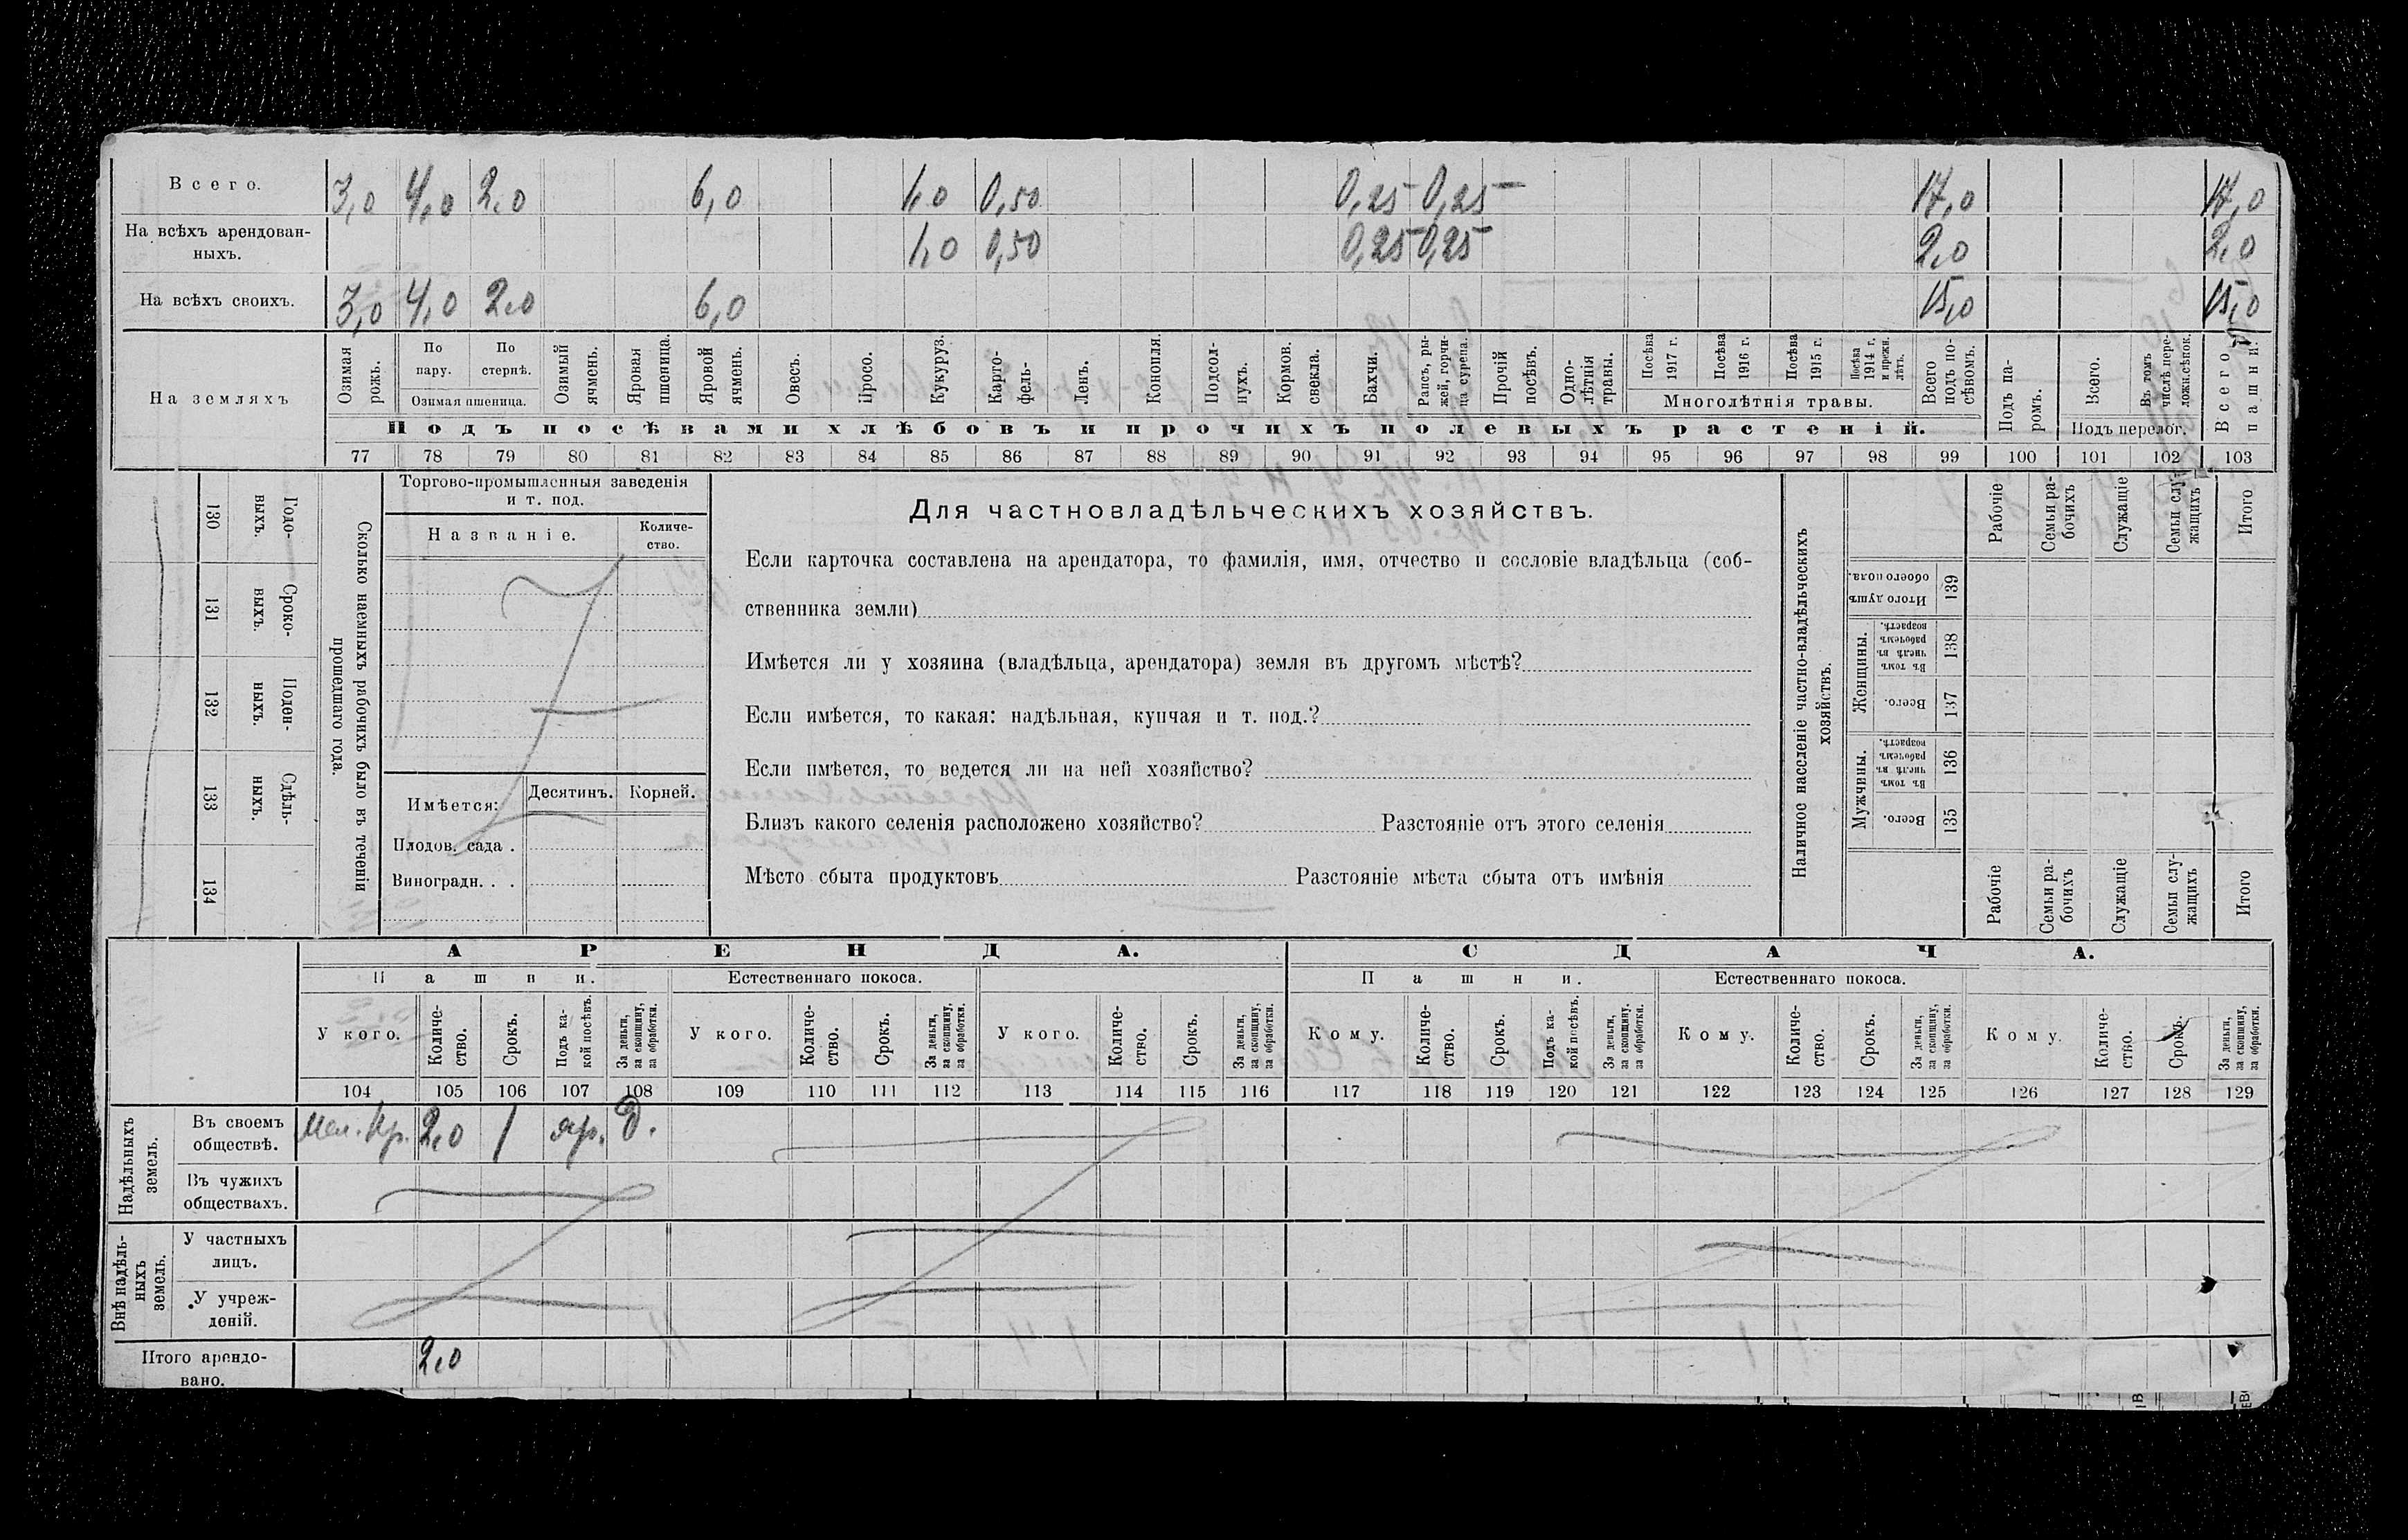 Всего. 3,0 4,0 2,0 6,0 1,0 0,50 0,25 0,25 17,0 17,0
На всѣхъ арендован-
ныхъ. 1,0 0,50 0,25 0,25 2,0 2,0
На всѣхъ своихъ. 3,0 4,0 2,0 6,0 15,0 15,0
На земляхъ
Озимая
рожь.
По
пару.
По
стернѣ.
Озимая пшеница.
Озимый
ячмень.
Яровая
пшеница.
Яровой
ячмень.
Овесъ.
Просо.
Кукуруз.
Карто-
фель.
Ленъ.
Конопля.
Подсол-
нухъ.
Кормов.
свекла.
Бахчи.
Рапсъ, ры-
жей, горчи-
ца сурепа.
Прочій
посѣвъ.
Одно-
лѣтнія
травы.
Посѣва
1917 г.
Посѣва
1916 г.
Посѣва
1915 г.
Посѣва
1914 г.
и прежн.
лѣтъ.
Многолѣтнія травы.
Всего
подъ по-
сѣвомъ.
Подъ па-
ромъ.
Всего.
Въ томъ
числѣ пере-
ложн.сѣнок.
Подъ перелог.
Всего
пашни.
Подъ посѣвами хлѣбовъ и прочихъ полевыхъ растеній.
77 78 79 80 81 82 83 84 85 86 87 88 89 90 91 92 93 94 95 96 97 98 99 100 101 102 103
130
Годо-
выхъ.
131
Сроко-
выхъ.
132
Поден-
ныхъ.
133
Сдѣль-
ныхъ.
134
Сколько наемныхъ рабочихъ было въ теченіи
прошедшаго года.
Торгово-промышленныя заведенія
и т. под.
Названіе.
Количе-
ство.
Имѣется: Десятинъ. Корней.
Плодов. сада .
Виноградн. . .
Для частновладѣльческихъ хозяйствъ.
Если карточка составлена на арендатора, то фамилія, имя, отчество и сословіе владѣльца (соб-
ственника земли)
Имѣется ли у хозяина (владѣльца, арендатора) земля въ другомъ мѣстѣ?
Если имѣется, то какая: надѣльная, купчая и т. под.?
Если имѣется, то ведется ли на ней хозяйство?
Близъ какого селенія расположено хозяйство? Разстояніе отъ этого селенія
Мѣсто сбыта продуктовъ Разстояніе мѣста сбыта отъ имѣнія
Наличное населеніе частно-владѣльческихъ
хозяйствъ.
Рабочіе
Семьи ра-
бочихъ
Служащіе
Семьи слу-
жащихъ
Итого
Итого душъ
обоего пола.
139
Женщины.
Въ томъ
числѣ въ
рабочемъ
возрастѣ.
138
Всего.
137
Мужчины.
Въ томъ
числѣ въ
рабочемъ
возрастѣ.
136
Всего.
135
Рабочіе
Семьи ра-
бочихъ
Служащіе
Семьи слу-
жащихъ
Итого
АРЕНДА. СДАЧА.
Пашни. Естественнаго покоса. Пашни. Естественнаго покоса.
У кого.
Количе-
ство.
Срокъ.
Подъ ка-
кой посѣвъ.
За деньги,
за скопщину,
за обработки.
У кого.
Количе-
ство.
Срокъ.
За деньги,
за скопщину,
за обработки.
У кого.
Количе-
ство.
Срокъ.
За деньги,
за скопщину,
за обработки.
Кому.
Количе-
ство.
Срокъ.
Подъ ка-
кой посѣвъ.
За деньги,
за скопщину,
за обработки.
Кому.
Количе-
ство.
Срокъ.
За деньги,
за скопщину,
за обработки.
Кому.
Количе-
ство.
Срокъ.
За деньги,
за скопщину,
за обработки.
104 105 106 107 108 109 110 111 112 113 114 115 116 117 118 119 120 121 122 123 124 125 126 127 128 129
Надѣльныхъ
земель.
Въ своемъ
обществѣ. Кр. 2,0 1 яр. д.
Въ чужихъ
обществахъ.
Внѣ надѣль-
ныхъ
земель.
У частныхъ
лицъ.
У учреж-
деній.
Итого арендо-
вано. 2,0